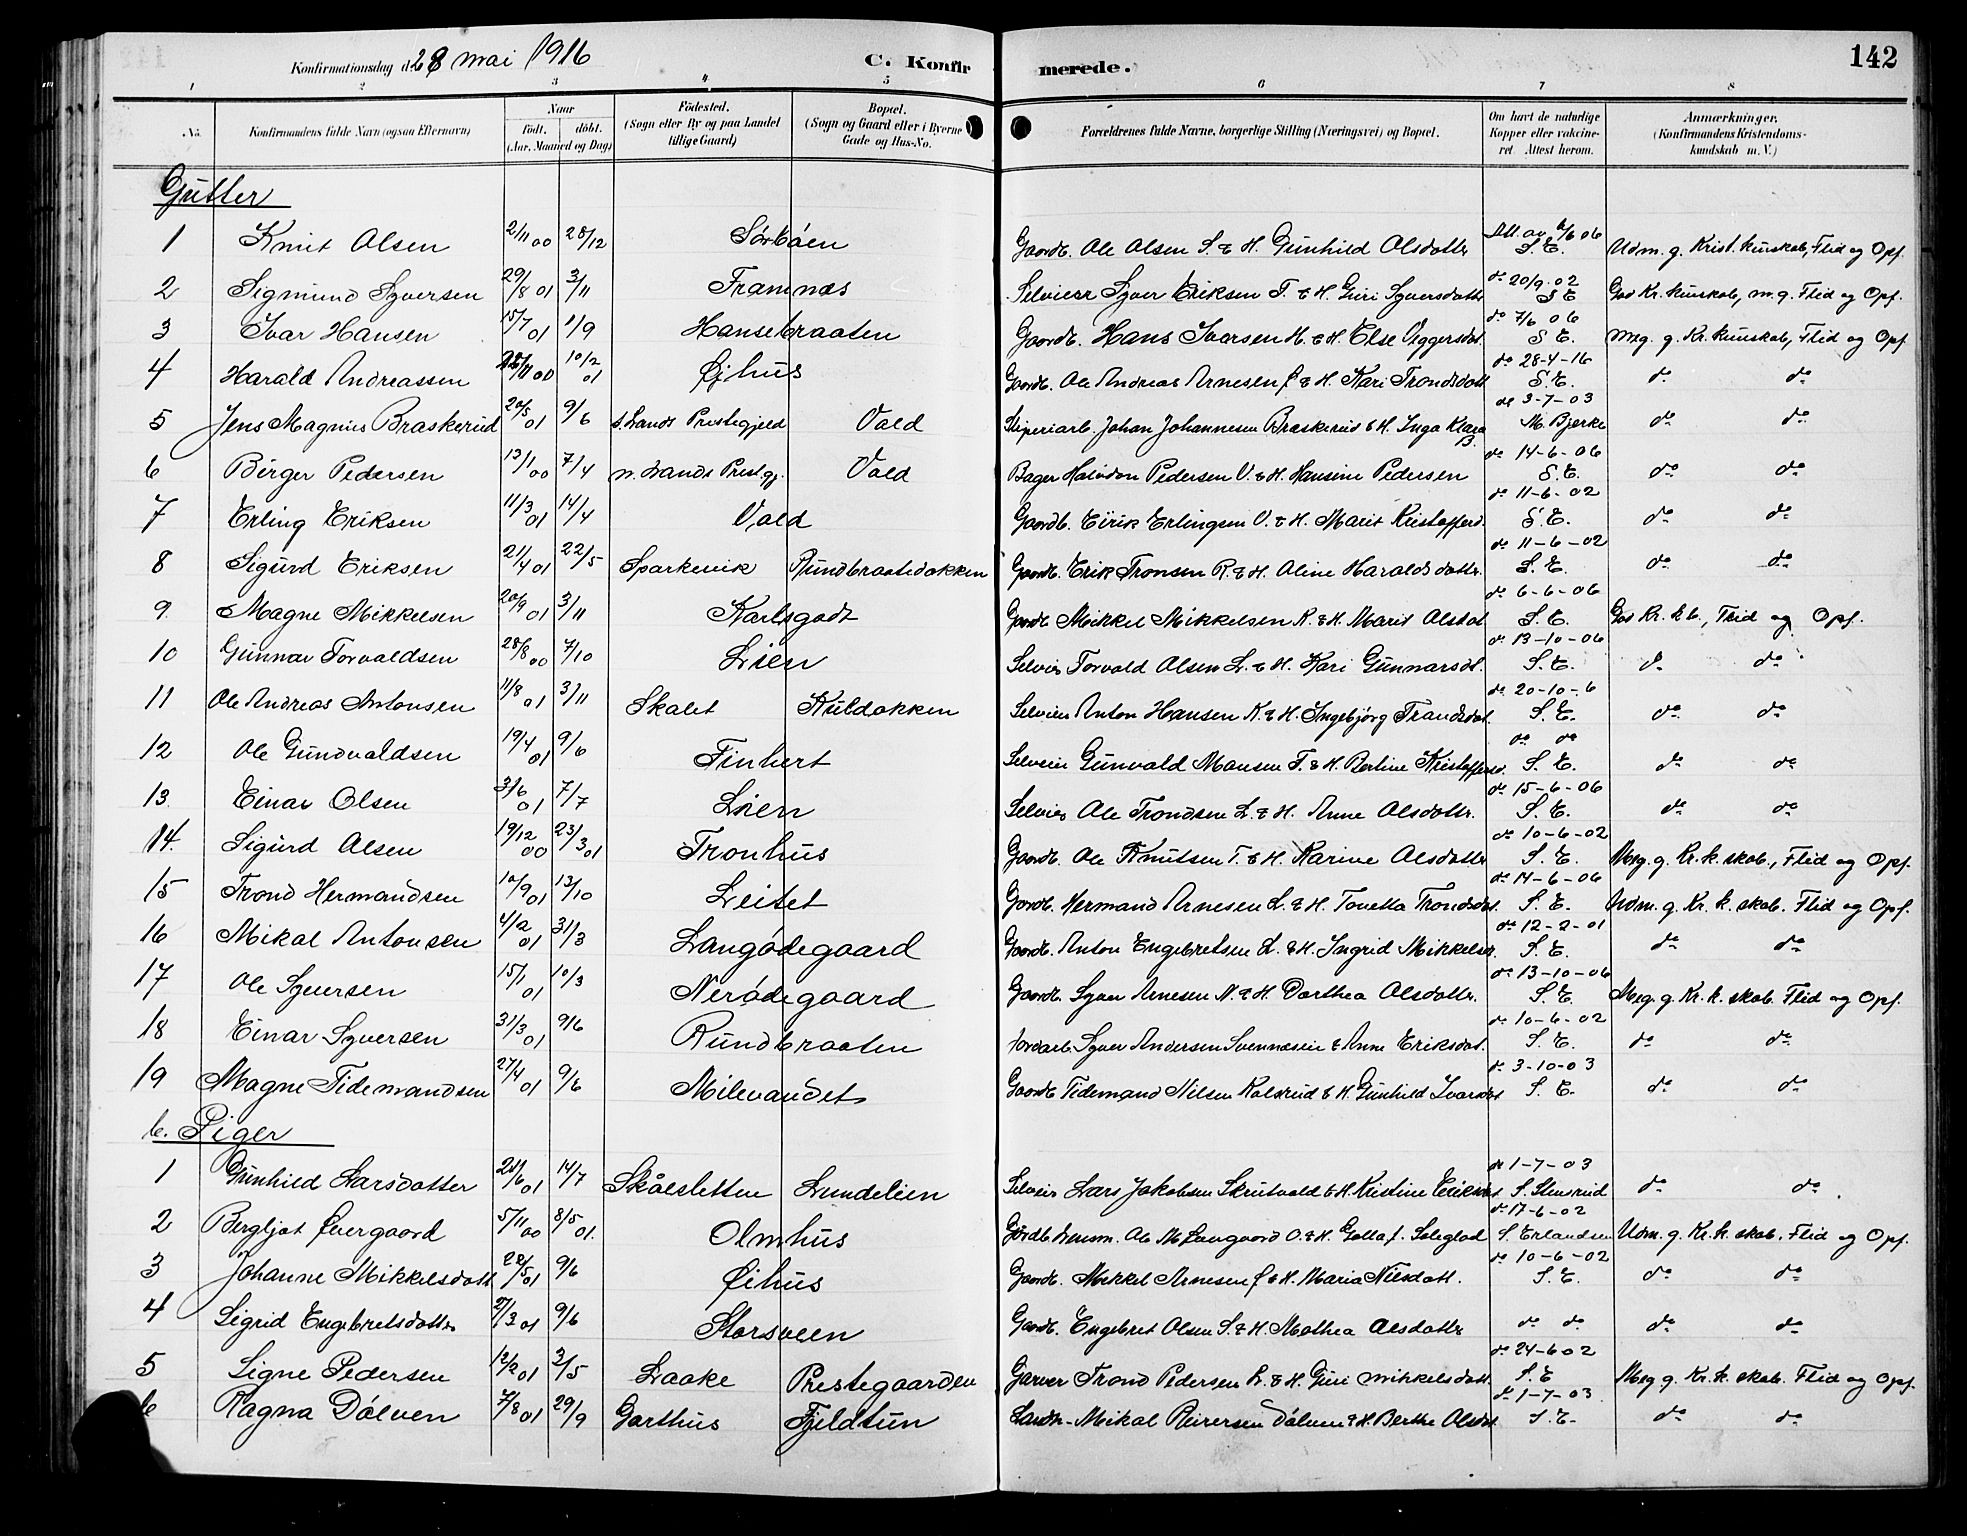 Konfirmationsdag d. 28 mai 1916 C. Konfirmerede. 142
1 2 3 4 5 6 7 8
No. Konfirmandens fulde Navn (ogsaa Efternavn) Naar født. døbt. (Aar, Maaned og Dag) Fødested. (Sogn eller By og paa Landet tillige Gaard) Bopæl. (Sogn og Gaard eller i Byerne Gade og Hus-No. Forældrenes fulde Navne, borgerlige Stilling (Næringsvei) og Bopæl. Om havt de naturlige Kopper eller vakcineret. Attest herom. Anmærkninger. (Konfirmandens Kristendomskundskab m. V.)
Gutter
1 Knut Olsen 2/11 00 28/12 Sørbøen Gaardb. Ole Olsen S. & H. Gunhild Olsdatter S.E. Udm. g. Krist. kunskab, Flid og Opf.
2 Sigmund Syversen 29/8 01 3/11 Framnæs Selveier Syver Eriksen F. & H. Guri Syversdatter do 20/9 02 S E God Kr. kunskab, m.g. Flid og Opf.
3 Ivar Hansen 15/7 01 1/9 Hansebraaten Gaardb. Hans Ivarsen H. & H. Else Viggersdat. do 7/6 06 S E. Meg. g. Kr. kunskab, Flid og Opf
4 Harald Andreassen 00 10/2 01 Øjhus Gaardb. Ole Andreas Arnesen Ø & H. Kari Trondsdatt do 28-4-16 S.E. do do
5 Jens Magnus Braskerud 20/5 01 9/6 S. Lands Prestegjeld Vold Sliperiarb. Johan Johannesen Braskerud & H. Inga Klara B. do 3-7-03 M. Bjerke do do
6 Birger Pedersen 13/1 00 7/4 N. Lands Prest.gj. Vold Bager Halvdan Pedersen V. & H. Hansine Pedersen do 14-6-06 S.E. do do
7 Erling Eriksen 11/3 01 14/4 Vold Gaardb. Eirik Erlingsen V. & H. Marit Kristofferd. do 11-6-02 S.E. do do
8 Sigurd Eriksen 21/4 01 22/5 Sparkevik Rundbraatedokken Gaardb. Erik Tronsen R. & H. Oline Haraldsdatter do 11-6-02 S.E. do do
9 Magne Mikkelsen 20/9 01 3/11 Karlsgodt Gaardb. Mikkel Mikkelsen K. & H. Marit Olsdat do 6-6-06 S.E. God Kr. k b., Flid og Opf.
10 Gunnar Torvaldsen 28/8 00 7/10 Lien Selveier Torvald Olsen L. & H. Kari Gunnarsdt. do 13-10-06 S.E. do do
11 Ole Andreas Antonsen 11/8 01 3/11 Skalet Kuldokken Selveier Anton Hansen K. & H. Ingebjørg Trandsdat. do 20-10-6 S.E. do do
12 Ole Gundvaldsen 19/4 01 9/6 Finhert Selveier Gunvald Mansen F. & H. Berline Kristoffersd. do do S.E. do do
13 Einar Olsen 3/6 01 7/7 Lien Selveier Ole Trondsen L. & H. Anne Olsdatter. do 15-6-06 S.E. do do
14. Sigurd Olsen 19/12 00 23/3 01 Tronhus Gaardb. Ole Knutsen T. & H. Karine Olsdatter do 10-6-02 S.E. Meg. g. Kr. k. skab., Flid og Opf.
15 Trond Hermandsen 10/9 01 13/10 Leitet Gaardb. Hermand Arnesen L. & H. Tonetta Trondsdat. do 14-6-06 S.E. Udm. g. Kr. k. skab. Flid og Opf.
16 Mikal Antonsen 4/2 01 31/3 Langødegaard Gaardb. Anton Engebretsen L. & H. Ingrid Mikkelsdt. do 12-2-01 S.E. do do
17 Ole Syversen 15/1 01 10/3 Nerødegaard Gaardb. Syver Arnesen N. & H. Dorthea Olsdatter. do 13-10-06 S.E. Meg. g. Kr. k. skab. Flid og Opf.
18 Einar Syversen 31/3 01 9/6 Rundbraaten Jordarb. Syver Andersen Svennæseie & Anne Eriksdat. do 10-6-02 S.E. do do
19 Magne Tidemandsen 27/4 01 9/6 Milevandet Gaardb. Tidemand Nilsen Kolsrud & H. Gunhild Ivarsdat do 3-10-03 S.E. do do
b. Piger
1 Gunhild Larsdatter 01 14/7 Skålsletten Lundelien Selveier Lars Jakobsen Skrutvold & H. Kristine Eriksdat do 1-7-03 S. Stensrud do do
2 Bergljot Øvergaard 5/11 00 8/5 01. Olmhus Gårdb. Lensm. Ole M. O. & H. Golla f. Soleglad do 17-6-02 S. Erlandsen Udm. g. Kr. k. skab. Flid og Opf.
3 Johanne Mikkelsdatt 01 9/6 Øihus Gaardb. Mikkel Arnesen Ø & H. Maria Nilsdatt. do 10-6-02 S.E. do do
4 Sigrid Engebretsdatter 27/3 01 9/6 Storsveen Gaardb. Engebret Olsen S. & H. Mathea Olsdatter do do do do
5 Signe Pedersen 12/2 01 2/5 Laake Prestegaarden Garver Trond Pedersen L. & H. Guri Mikkelsdatt. do 24-6 02 S.E Meg g. Kr. k. skab. Flid og Opf.
6 Ragna Dølven 7/8 01 29/9 Garthus Fjeldtun Landh. Mikal Reiersen Dølven & H Berthe Olsdat. do 1-7-03 S.E. do do